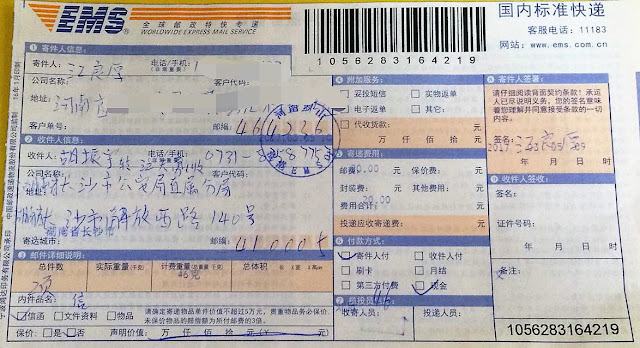 EMS
全球邮政特快专递
WORLDWIDE EXPRESS MAIL SERVICE
1056283164219
国内标准快递
客服电话：11183
网站：www.ems.com.cn
① 寄件人信息：
寄件人： 江良厚 电话/手机：
(非常重要)
公司名称： 客户代码：
地址： 河南省
客户单号： 邮编： 464236
② 收件人信息：
收件人： 电话/手机： 0731-
(非常重要)
公司名称： 客户代码：
长沙市公安局直属分局
地址： 长沙市解放西路140号
湖南省长沙市
寄达城市： 邮编： 410005
③ 邮件详细说明：
总件数 实际重量(千克) 计费重量(千克) 总体积
内件品名： 信
信函 文件资料 物品
请确定寄递物品单件价值不超过5万元，贵重物品务必保价，
未保价物品的赔偿额为所付邮费的3倍。
保价： 是 否 声明价值： 万 仟 佰 拾 元
④ 附加服务：
妥投短信 实物返单
电子返单 其它：
代收货款：
万 仟 佰 拾 元
⑤ 寄递费用：
邮费 保价费： 元
封装费： 元 其他费用： 元
费用合计： 20.00 元
投递应收寄递费： 元
⑥ 付款方式：
寄件人付 收件人付
刷卡 月结
第三方付费 现金
⑦ 揽投员信息：
收寄人员： 投递人员：
⑧ 寄件人签署：
请仔细阅读背面契约条款！承运
人已尽说明义务，您的签名意味
着您理解并同意接受条款的一
切内容。
签名： 江良厚
2017
年 月 日 时
⑨ 收件人签收：
签名：
证件号码：
年 月 日 时
备注：
1056283164219